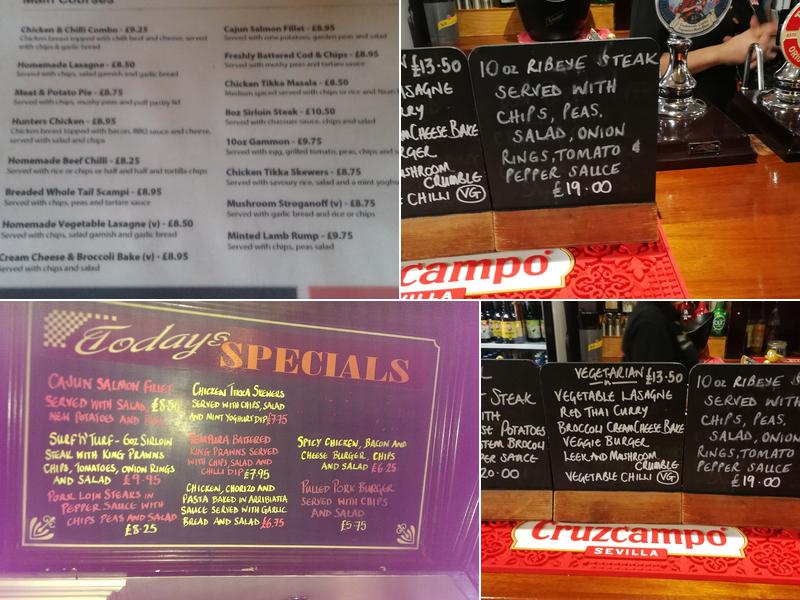 Main Courses
Chicken & Chilli Combo - £9.25
Chicken breast topped with chilli beef and cheese, served
with chips & garlic bread
Homemade Lasagne - £8.50
Served with chips, salad garnish and garlic bread
Meat & Potato Pie - £8.75
Served with chips, mushy peas and puff pastry lid
Hunters Chicken - £8.95
Chicken breast topped with bacon, BBQ sauce and cheese,
served with salad and chips
Homemade Beef Chilli - £8.25
Served with rice or chips or half and half and tortilla chips
Breaded Whole Tail Scampi - £8.95
Served with chips, peas and tartare sauce
Homemade Vegetable Lasagne (v) - £8.50
Served with chips, salad garnish and garlic bread
Cream Cheese & Broccoli Bake (v) - £8.95
Served with chips and salad
Cajun Salmon Fillet - £8.95
Served with new potatoes, garden peas and salad
Freshly Battered Cod & Chips - £8.95
Served with mushy peas and tartare sauce
Chicken Tikka Masala - £8.50
Medium spiced served with chips or rice and Naan
8oz Sirloin Steak - £10.50
Served with chasseur sauce, chips and salad
10oz Gammon - £9.75
Served with egg, grilled tomato, peas, chips and
Chicken Tikka Skewers - £8.75
Served with savoury rice, salad and a mint yoghu
Mushroom Stroganoff (v) - £8.75
Served with garlic bread and rice or chips
Minted Lamb Rump - £9.75
Served with chips, peas salad
£13.50
ASAGNE
RRY
AMCHEESE BAKE
RGER
USHROOM
CRUMBLE
E CHILLI VG
10oz RIBEYE STEAK
SERVED WITH
CHIPS, PEAS,
SALAD, ONION
RINGS, TOMATO &
PEPPER SAUCE
£19.00
zcampo
VILLA
Today's
SPECIALS
CAJUN SALMON FILLET
SERVED WITH SALAD
NEW POTATOES AND
CHICKEN TIKKA SKEWERS
SERVED WITH CHIPS, SALAD
AND MINT YOGHURT DIP £7.75
SURF 'N' TURF - 6OZ SIRLOIN
STEAK WITH KING PRAWNS
CHIPS, TOMATOES, ONION RINGS
AND SALAD £9.95
TEMPURA BATTERED
KING PRAWNS SERVED
WITH CHIPS, SALAD AND
CHILLI DIP £7.95
SPICY CHICKEN, BACON AND
CHEESE BURGER, CHIPS
AND SALAD £6.25
PORK LOIN STEAKS IN
PEPPER SAUCE WITH
CHIPS PEAS AND SALAD
£8.25
CHICKEN, CHORIZO AND
PASTA BAKED IN ARRIBIATTA
SAUCE SERVED WITH GARLIC
BREAD AND SALAD £6.75
PULLED PORK BURGER
SERVED WITH CHIPS
AND SALAD
£5.75
STEAK
ITH
SE POTATOES
STEM BROCOLI
PER SAUCE
20.00
VEGETARIAN £13.50
VEGETABLE LASAGNE
RED THAI CURRY
BROCCOLI CREAMCHEESE BAKE
VEGGIE BURGER
LEEK AND MUSHROOM
CRUMBLE
VEGETABLE CHILLI VG
10oz RIBEYE S
SERVED WITH
CHIPS, PEAS,
SALAD, ONION
RINGS, TOMATO
PEPPER SAUCE
£19.00
Cruzcampo
SEVILLA